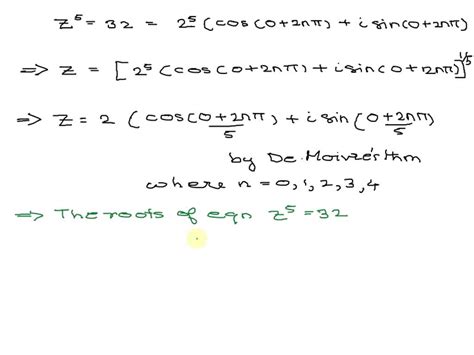 z⁵ = 32 = 2⁵ (cos(0+2nπ) + i sin(0+2nπ)
⇒ z = [2⁵ (cos(0+2nπ) + i sin(0+2nπ)]^{1/5}
⇒ z = 2 (cos(0+2nπ)/5 + i sin (0+2nπ)/5)
by De. Moivre's thm
where n = 0, 1, 2, 3, 4
⇒ The roots of eqn z⁵ = 32